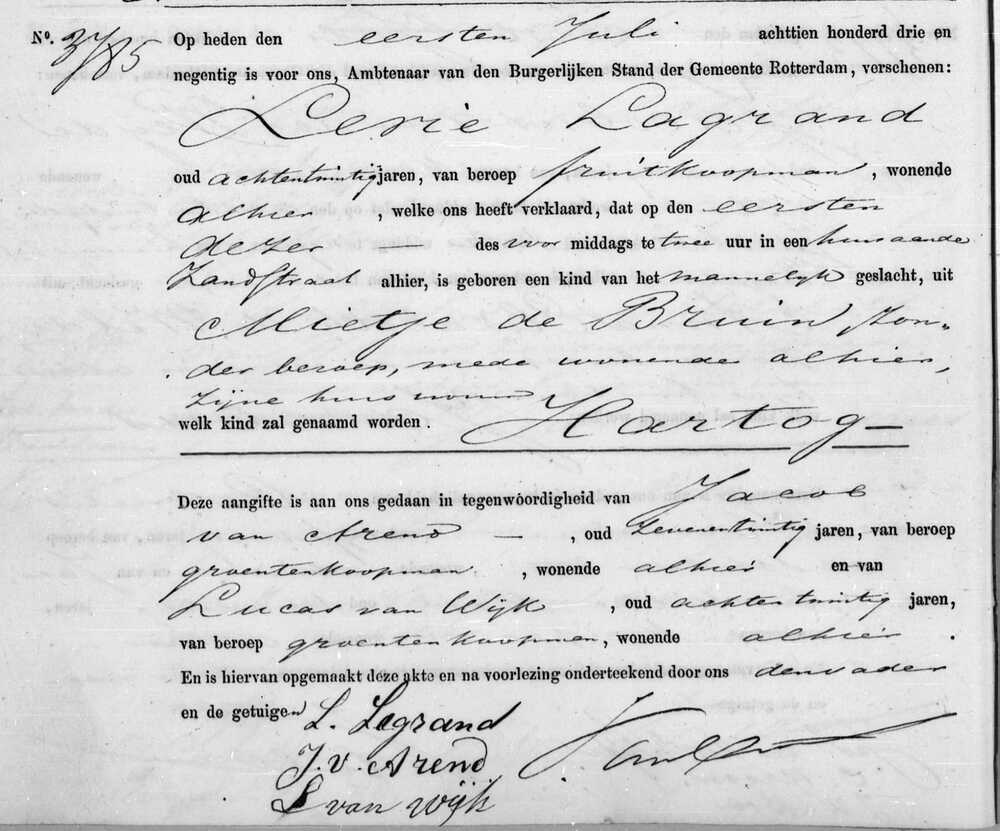 Nº. 3785
Op heden den eersten Juli achttien honderd drie en
negentig is voor ons, Ambtenaar van den Burgerlijken Stand der Gemeente Rotterdam, verschenen:
Levie Lagrand
oud achtentwintig jaren, van beroep fruitkoopman, wonende
alhier, welke ons heeft verklaard, dat op den eersten
dezer des voor middags te twee uur in een huis aande
Zandstraat alhier, is geboren een kind van het mannelijk geslacht, uit
Mietje de Bruin, zon„
der beroep, mede wonende alhier,
zijne huisvrouw
welk kind zal genaamd worden. Hartog
Deze aangifte is aan ons gedaan in tegenwoordigheid van Jacob
van Arend, oud zevenentwintig jaren, van beroep
groentenkoopman, wonende alhier en van
Lucas van Wijk, oud achtentwintig jaren,
van beroep groentenkoopman, wonende alhier.
En is hiervan opgemaakt deze akte en na voorlezing onderteekend door ons den vader
en de getuigen
L. Legrand
J. v. Arend
L van Wijk